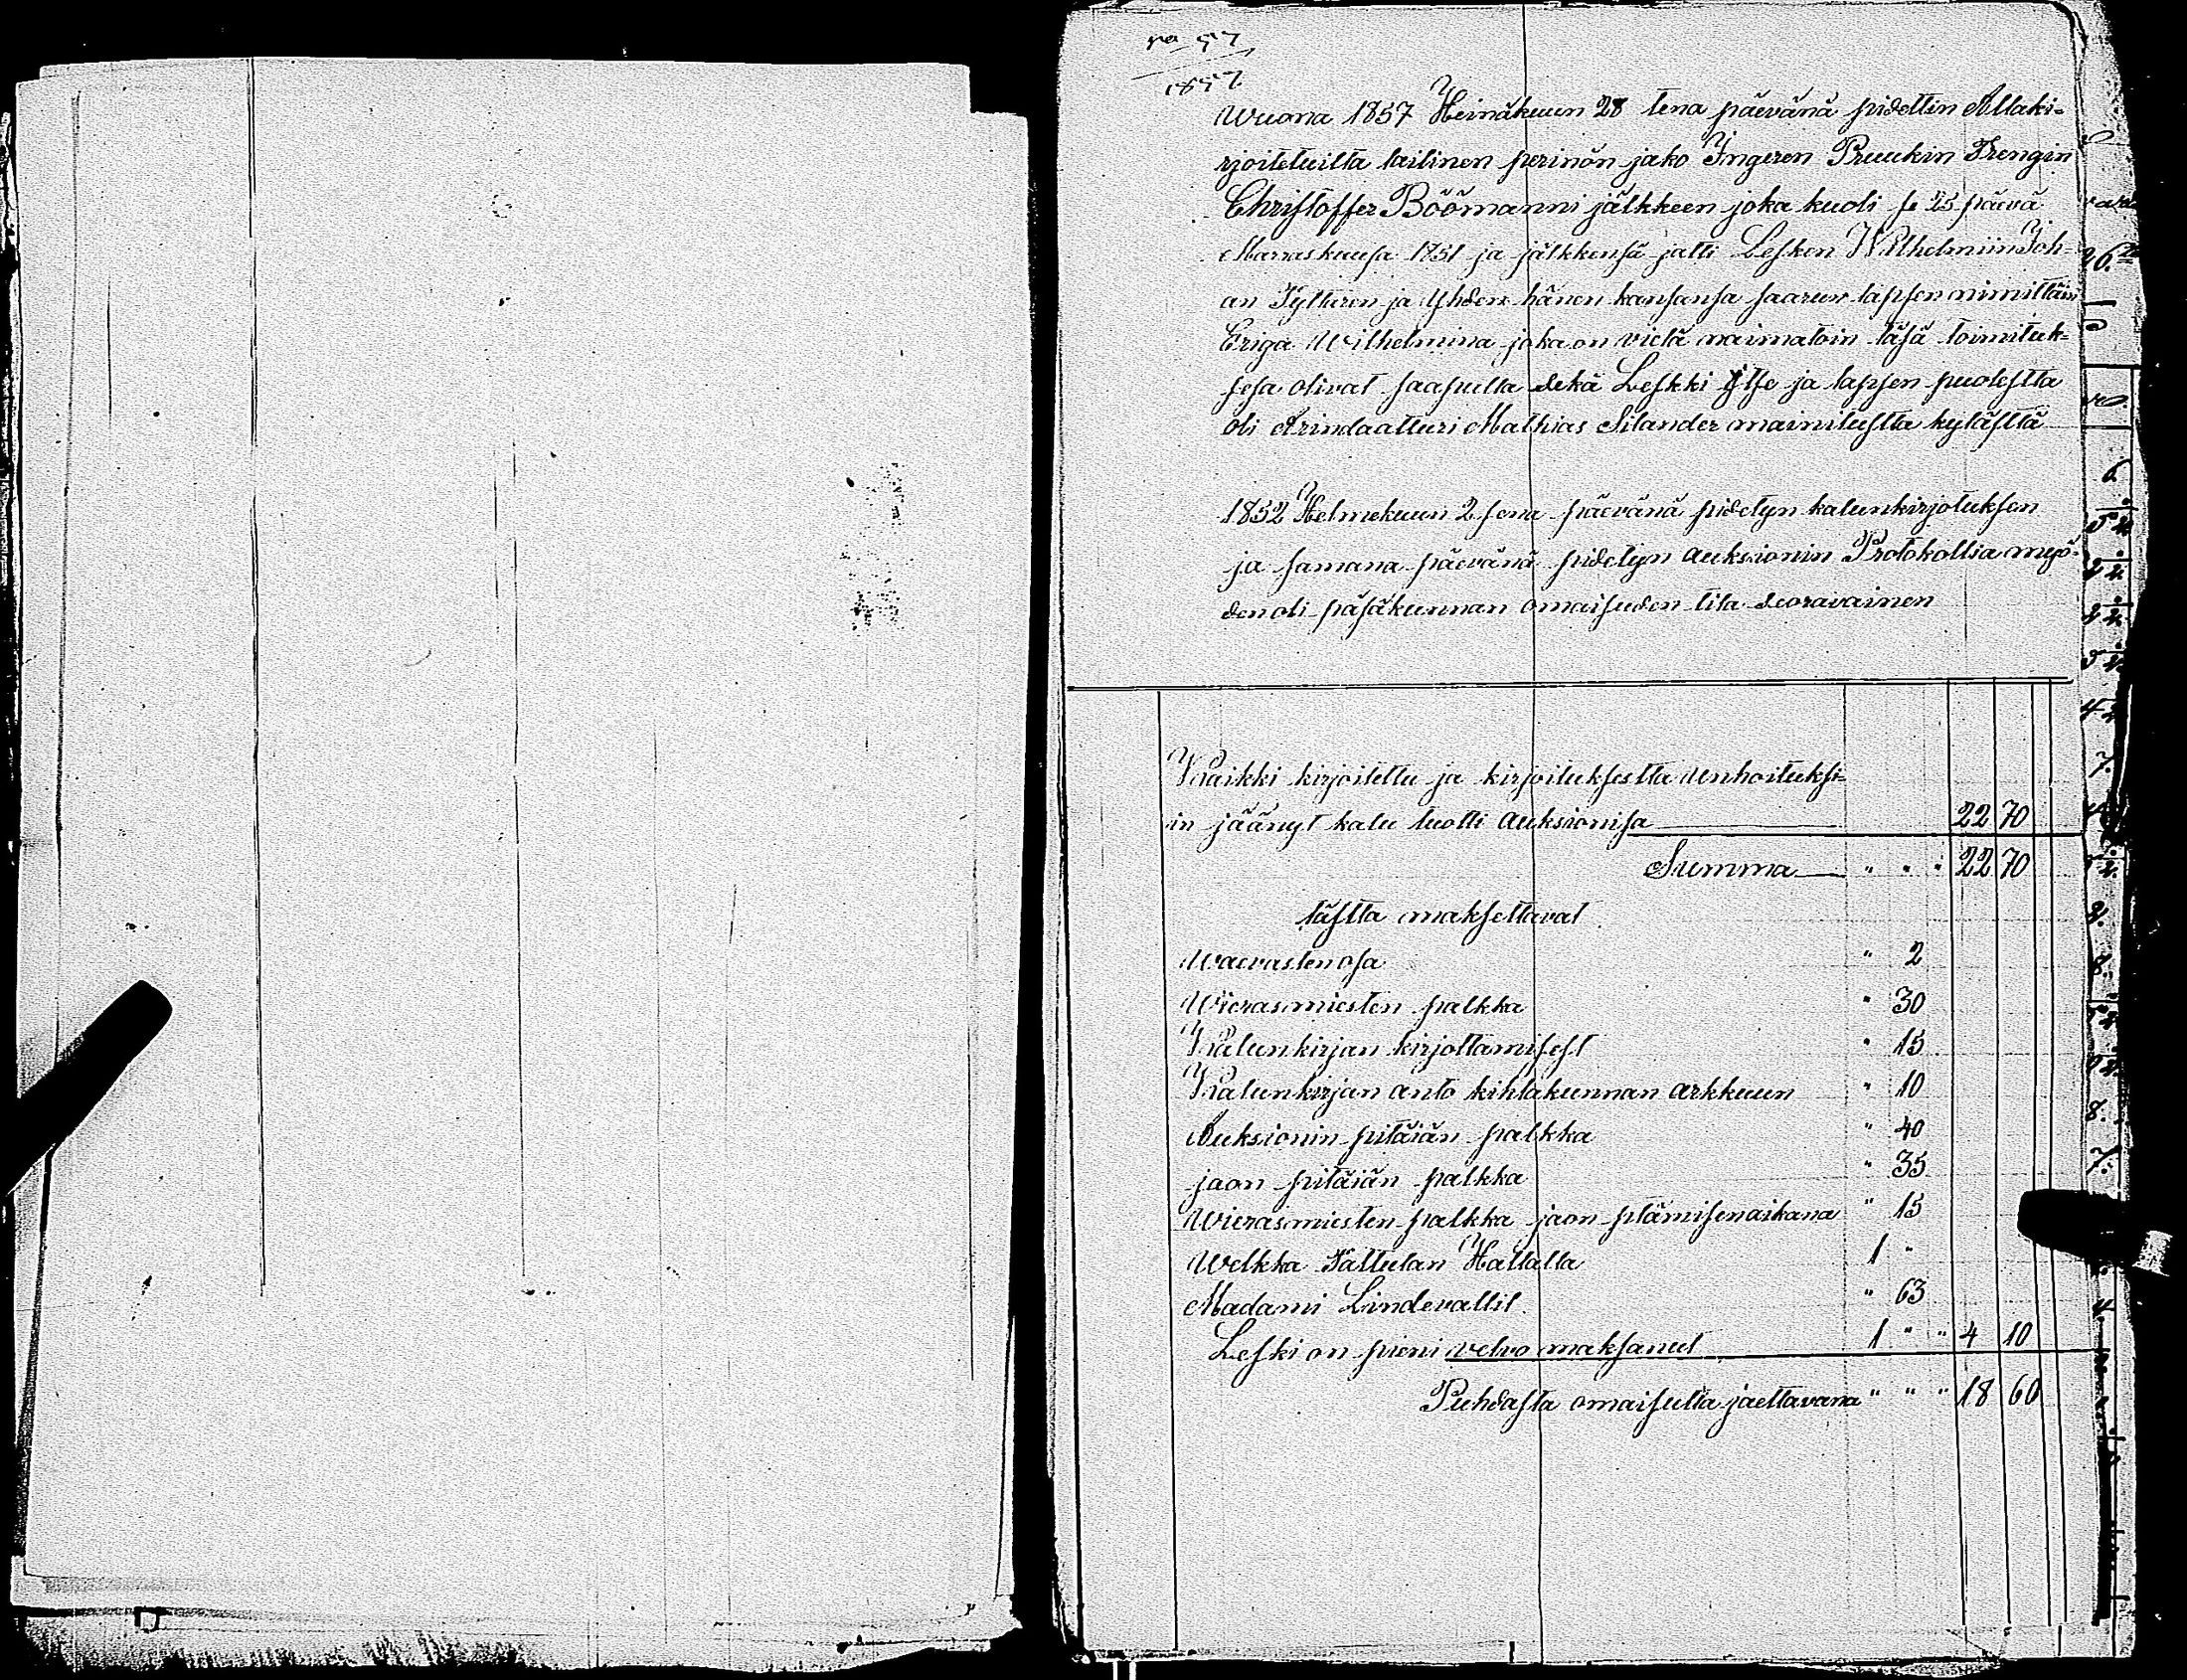 No 57
1857.
Wuona 1857 Heinäkuun 28 tena päevänä pidettin Allaki-
rjoitetuilta lailinen perinön jako Ingeren Pruukin Drengin
Christoffer Böömanni jälkkeen joka kuoli se 25 päevä
Marraskuusa 1851 ja jälkkensä jätti Lesken Wilhelmiin Joh-
an Tyttären ja Yhden hänen kansansa saarun lapsen nimittäin
Eriga Wilhelmina joka on vielä naimatoin täsä toimituk-
sesa olivat saapuilla sekä Leskki itse ja lapsen puolestta
oli Arindaatturi Mathias Silander mainitustta kylästtä
1852 Helmekuun 2 sena päevänä pidetyn kalunkirjotuksen
ja samana päevänä pidetyn auksionin Protokollia myö-
den oli päsäkunnan omaisuden tila seoravainen
Kaikki kirjoitettu ja kirjoituksestta unhoituksi-
in jäänyt kalu tuotti auksionisa 22 70
Summa " " " 22 70
tästta maksettavat
Waevasten osa " 2
Wierasmiesten palkka " 30
Kalunkirjan kirjottamisest " 15
Kalunkirjan anto kihlakunnan arkkuun " 10
Auksionin pitäiän palkka " 40
jaon pitäiän palkka " 35
Wierasmiesten palkka jaon ptämisenaikana " 15
Welkka Tattulan Hallalla 1 "
Madami Lindevallil " 63
Leski on pieni velvo maksanut 1 " " 4 10
Puhdasta omaisutta jaettavana " " " 18 60